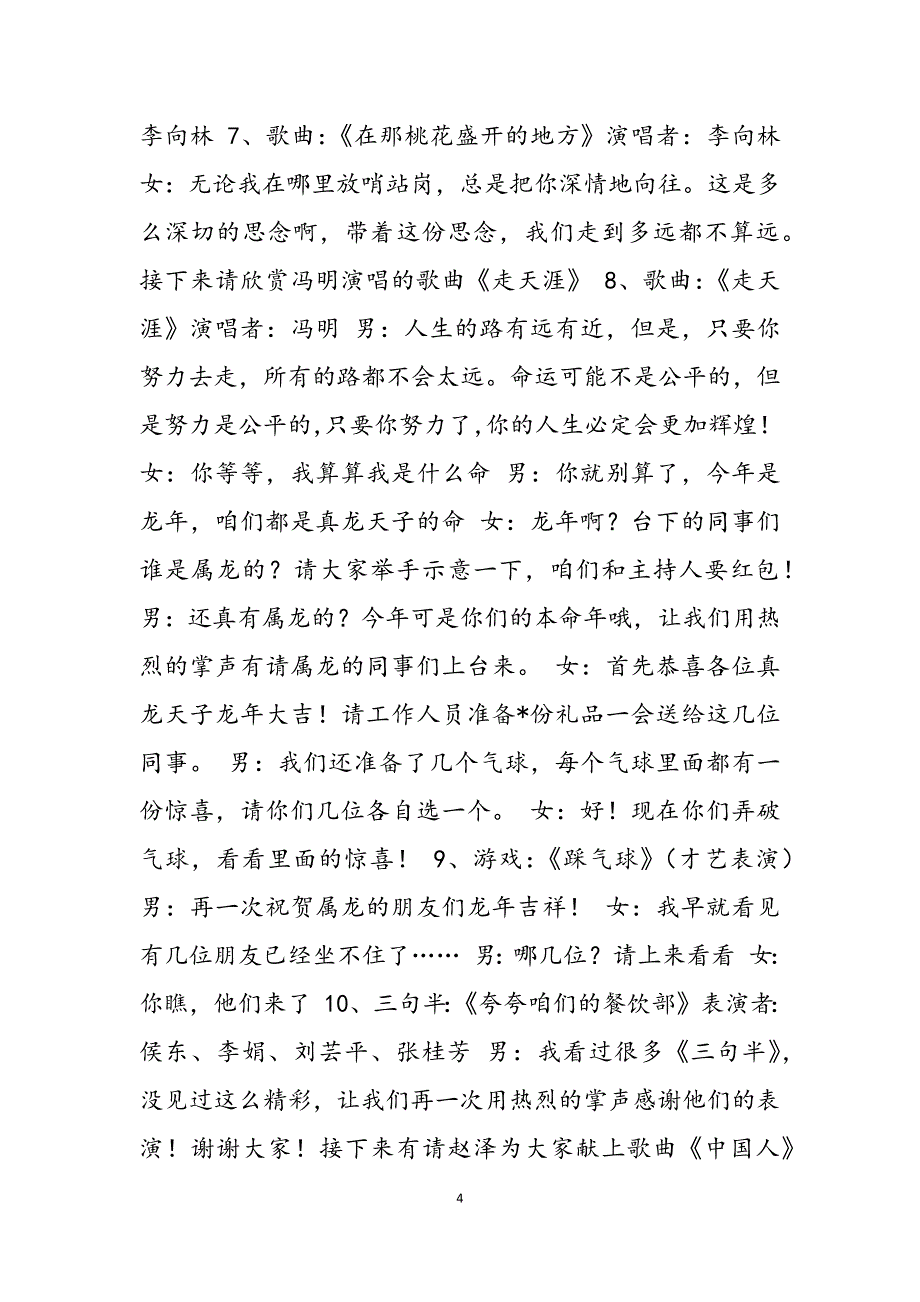 李向林 7、歌曲：《在那桃花盛开的地方》演唱者：李向林
女：无论我在哪里放哨站岗，总是把你深情地向往。这是多
么深切的思念啊，带着这份思念，我们走到多远都不算远。
接下来请欣赏冯明演唱的歌曲《走天涯》 8、歌曲：《走天
涯》演唱者：冯明 男：人生的路有远有近，但是，只要你
努力去走，所有的路都不会太远。命运可能不是公平的，但
是努力是公平的,只要你努力了,你的人生必定会更加辉煌！
女：你等等，我算算我是什么命 男：你就别算了，今年是
龙年，咱们都是真龙天子的命 女：龙年啊？台下的同事们
谁是属龙的？请大家举手示意一下，咱们和主持人要红包！
男：还真有属龙的？今年可是你们的本命年哦，让我们用热
烈的掌声有请属龙的同事们上台来。 女：首先恭喜各位真
龙天子龙年大吉！请工作人员准备*份礼品一会送给这几位
同事。 男：我们还准备了几个气球，每个气球里面都有一
份惊喜，请你们几位各自选一个。 女：好！现在你们弄破
气球，看看里面的惊喜！ 9、游戏：《踩气球》（才艺表演）
男：再一次祝贺属龙的朋友们龙年吉祥！ 女：我早就看见
有几位朋友已经坐不住了…… 男：哪几位？请上来看看 女：
你瞧，他们来了 10、三句半：《夸夸咱们的餐饮部》表演者：
侯东、李娟、刘芸平、张桂芳 男：我看过很多《三句半》，
没见过这么精彩，让我们再一次用热烈的掌声感谢他们的表
演！谢谢大家！接下来有请赵泽为大家献上歌曲《中国人》
4